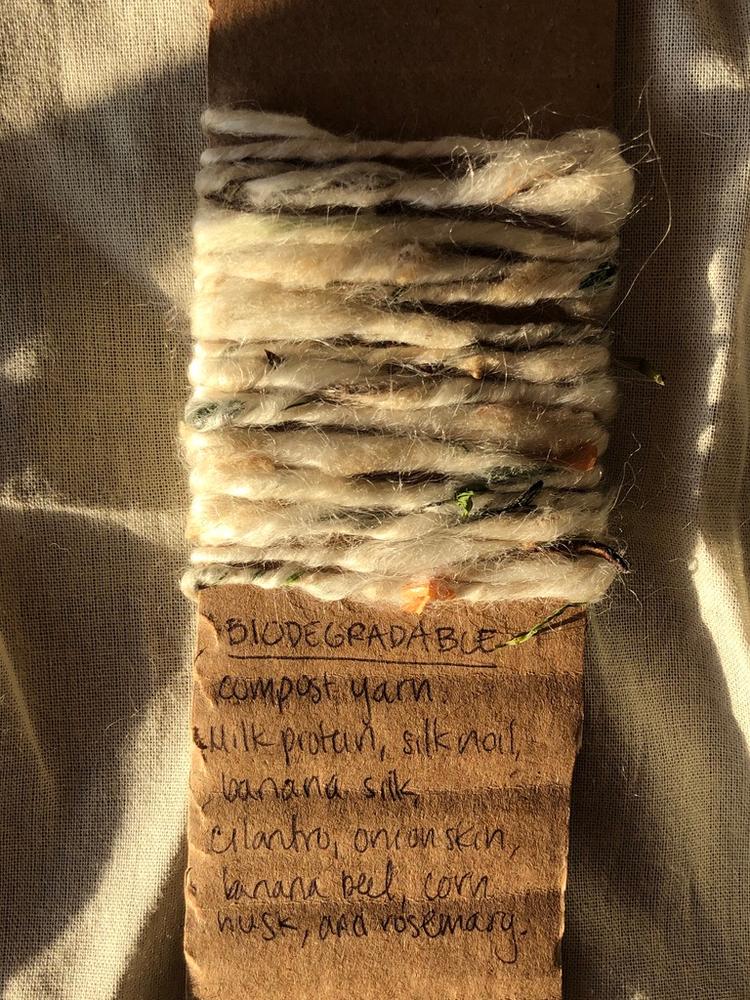 BIODEGRADABLE
compost yarn.
Milk protein, silk noil,
banana silk,
cilantro, onion skin,
banana peel, corn
husk, and rosemary.